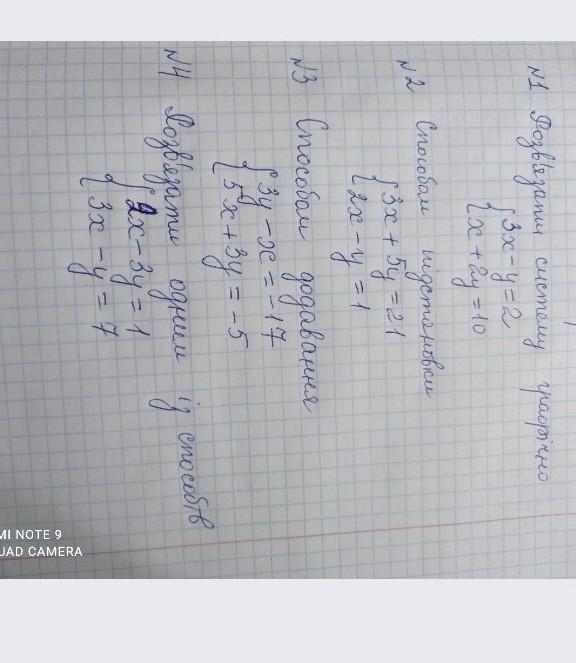 N1 Розв'язати систему графічно
{3x - y = 2
{x + 2y = 10
N2 Способом підстановки
{3x + 5y = 21
{2x - y = 1
N3 Способом додавання
{3y - x = -17
{5x + 3y = -5
N4 Розв'язати одним із способів
{2x - 3y = 1
{3x - y = 7
MI NOTE 9
QUAD CAMERA